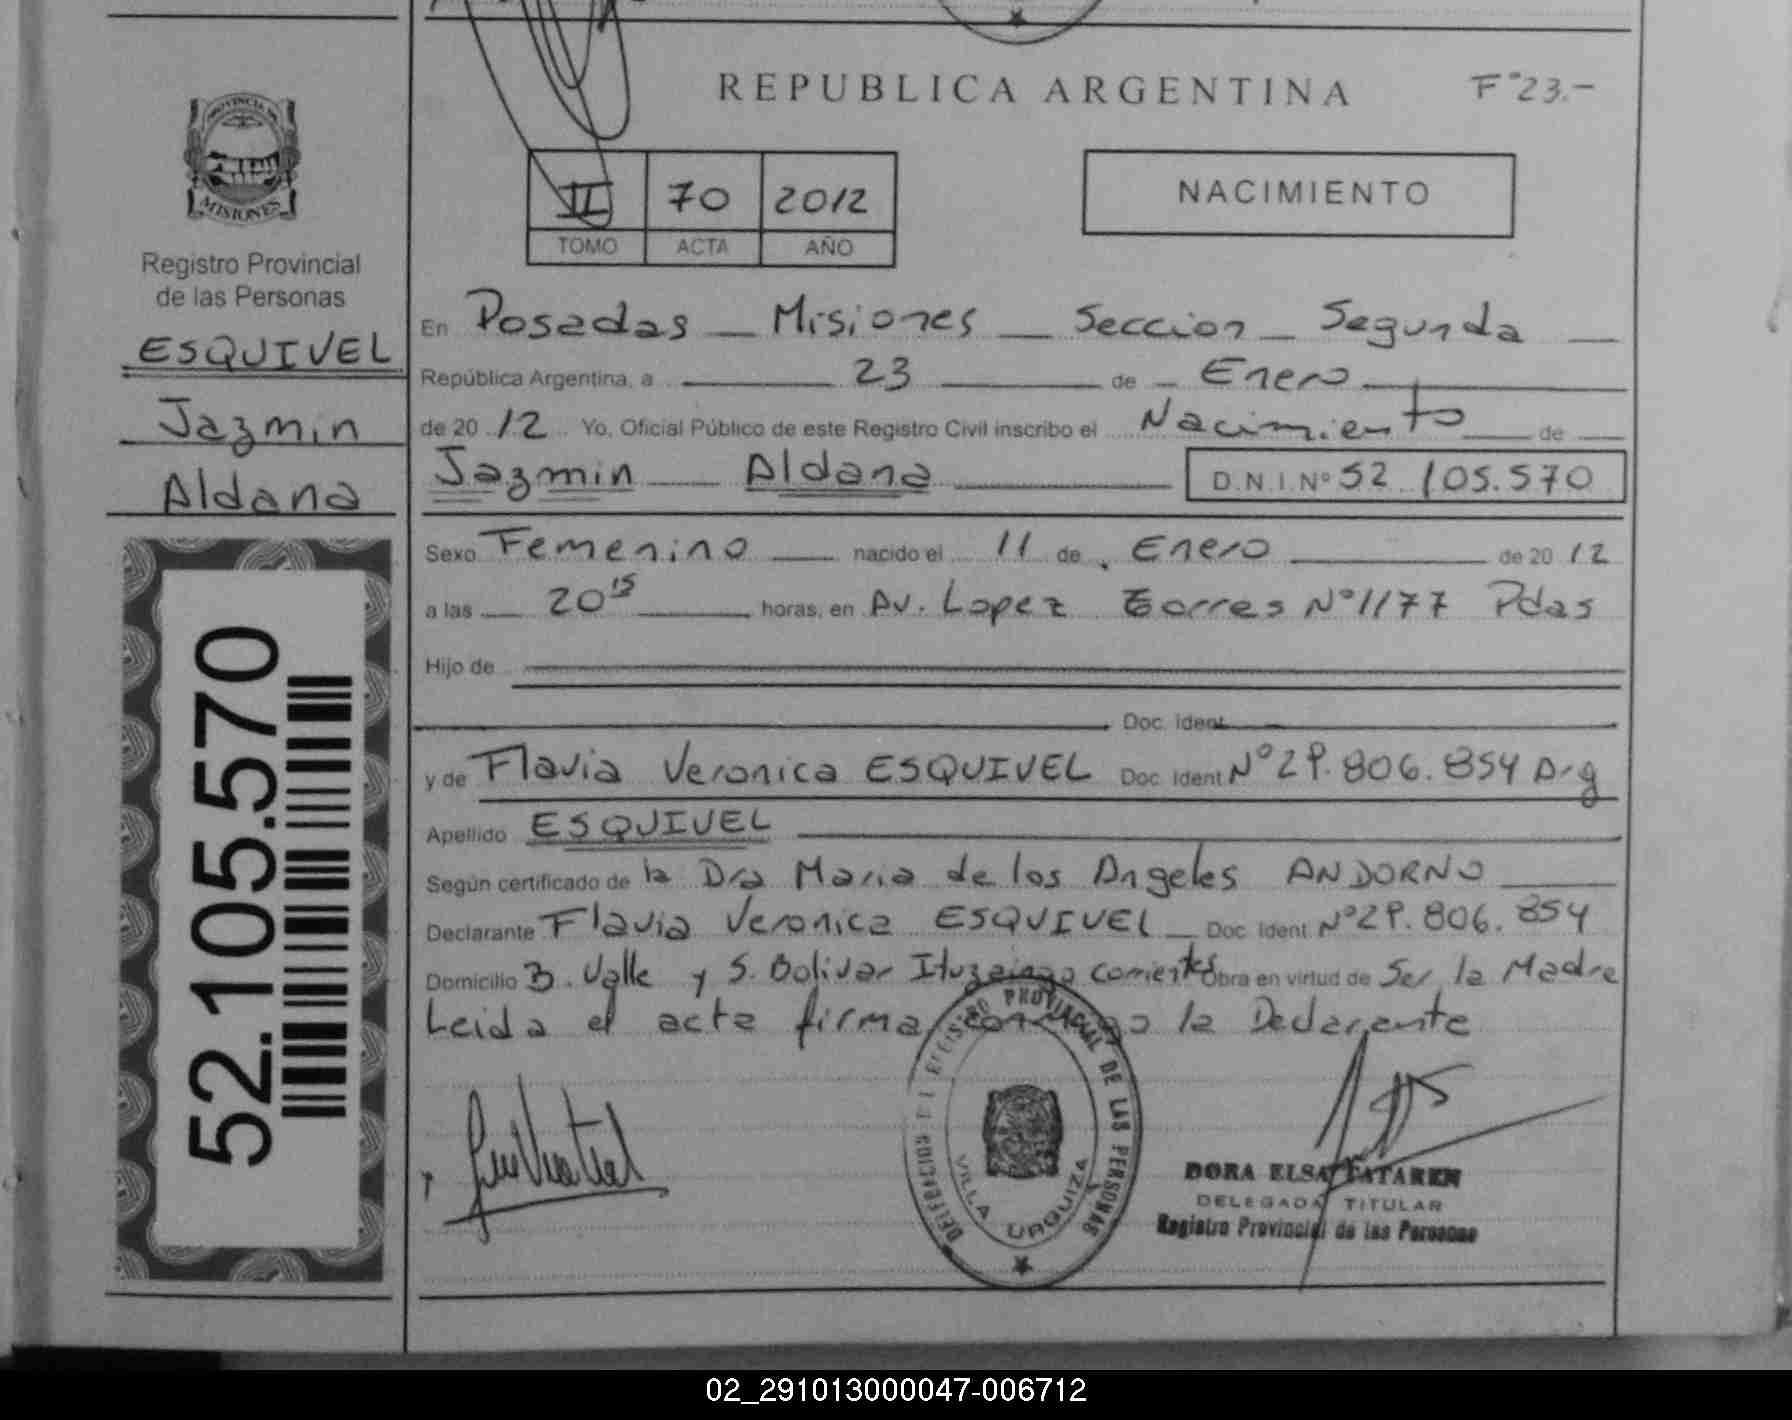 REPUBLICA ARGENTINA
F°23.-
PROVINCIA DE
MISIONES
Registro Provincial
de las Personas
ESQUIVEL
Jazmin
Aldana
52.105.570
II 70 2012
TOMO ACTA AÑO
NACIMIENTO
En Posadas Misiones Seccion Segunda
República Argentina, a 23 de Enero
de 20 12 Yo, Oficial Público de este Registro Civil inscribo el Nacimiento de
Jazmin Aldana D.N.I.N° 52 105.570
Sexo Femenino nacido el 11 de Enero de 20 12
a las 20 15 horas, en Av. Lopez Torres N°1177 Pdas
Hijo de
Doc. Ident.
y de Flavia Veronica ESQUIVEL Doc. Ident N°29.806.854 Arg
Apellido ESQUIVEL
Según certificado de la Dra Maria de los Angeles ANDORNO
Declarante Flavia Veronica ESQUIVEL Doc. Ident N°29.806.854
Domicilio B. Valle y S. Bolivar Ituzaingo corrientes Obra en virtud de Ser la Madre
Leida el acta firma conmigo la Declarante
PROVINCIAL DE LAS PERSONAS
VILLA URQUIZA
DORA ELSA TATAREN
DELEGADA TITULAR
Registro Provincial de las Personas
02_291013000047-006712